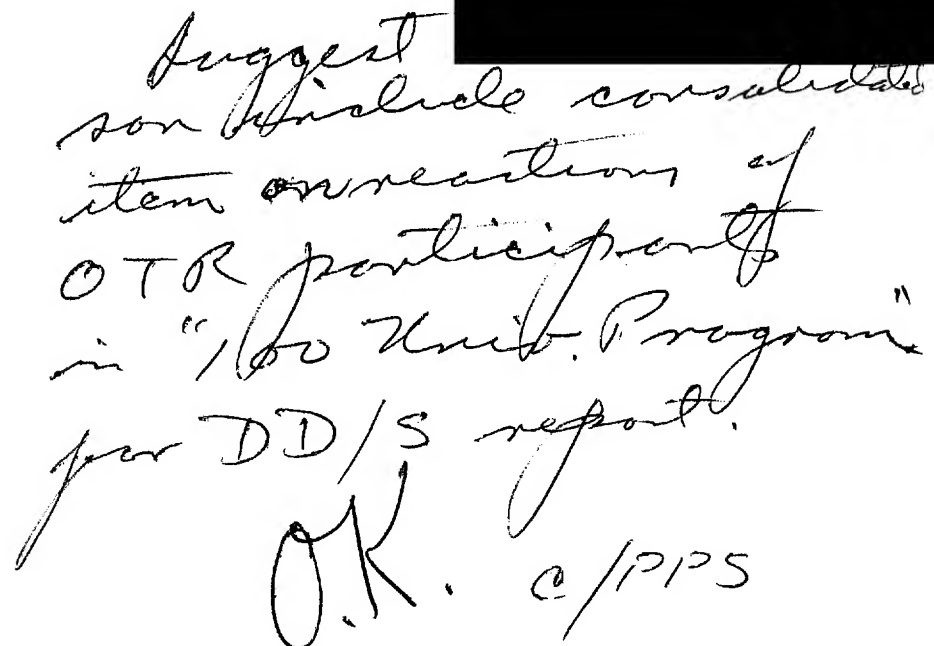 Suggest
son include consolidated
item on reactions of
OTR participants
in "100 Univ. Program"
for DD/S report.
O.K. c/PPS